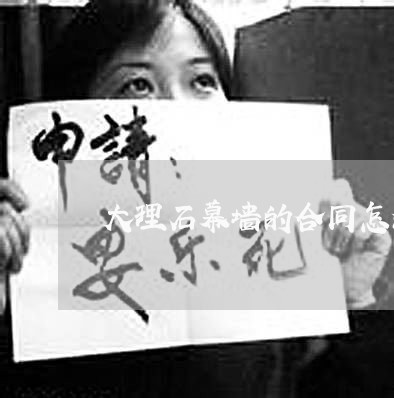 申請：
大理石幕墙的合同怎
安乐死